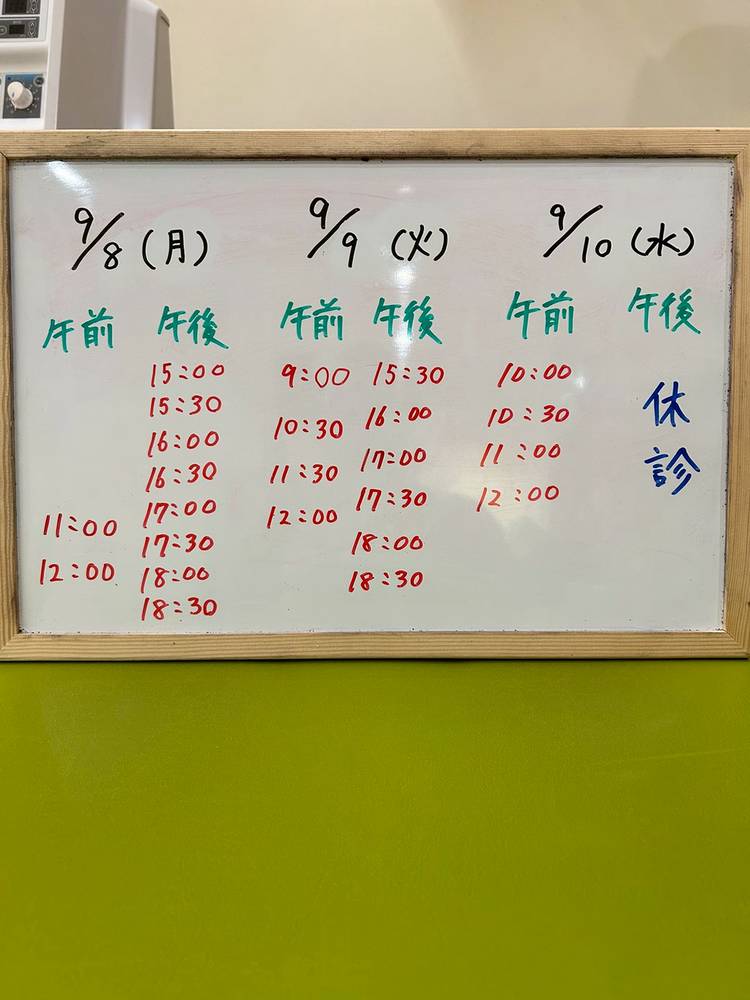 9/8(月)
午前
11:00
12:00
午後
15:00
15:30
16:00
16:30
17:00
17:30
18:00
18:30
9/9(火)
午前
9:00
10:30
11:30
12:00
午後
15:30
16:00
17:00
17:30
18:00
18:30
9/10(水)
午前
10:00
10:30
11:00
12:00
午後
休診